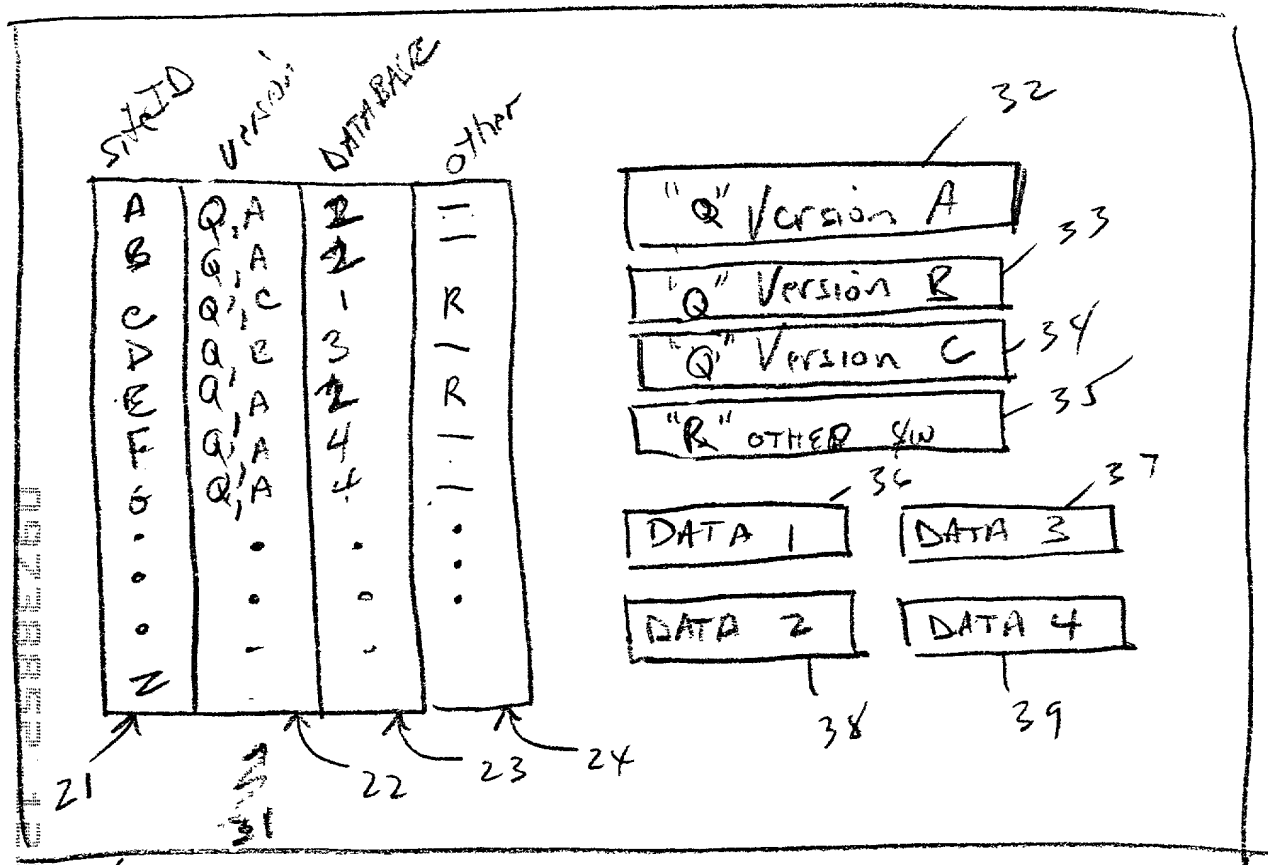 SiteID Version DATABASE Other
A Q,A 2 —
B Q,A 2 —
C Q,C 1 R
D Q,B 3 —
E Q,A 2 R
F Q,A 4 —
G Q,A 4 —
Z
21 22 23 24
31
32
"Q" Version A
33
"Q" Version B
34
"Q" Version C
35
"R" OTHER S/W
36 37
DATA 1 DATA 3
DATA 2 DATA 4
38 39